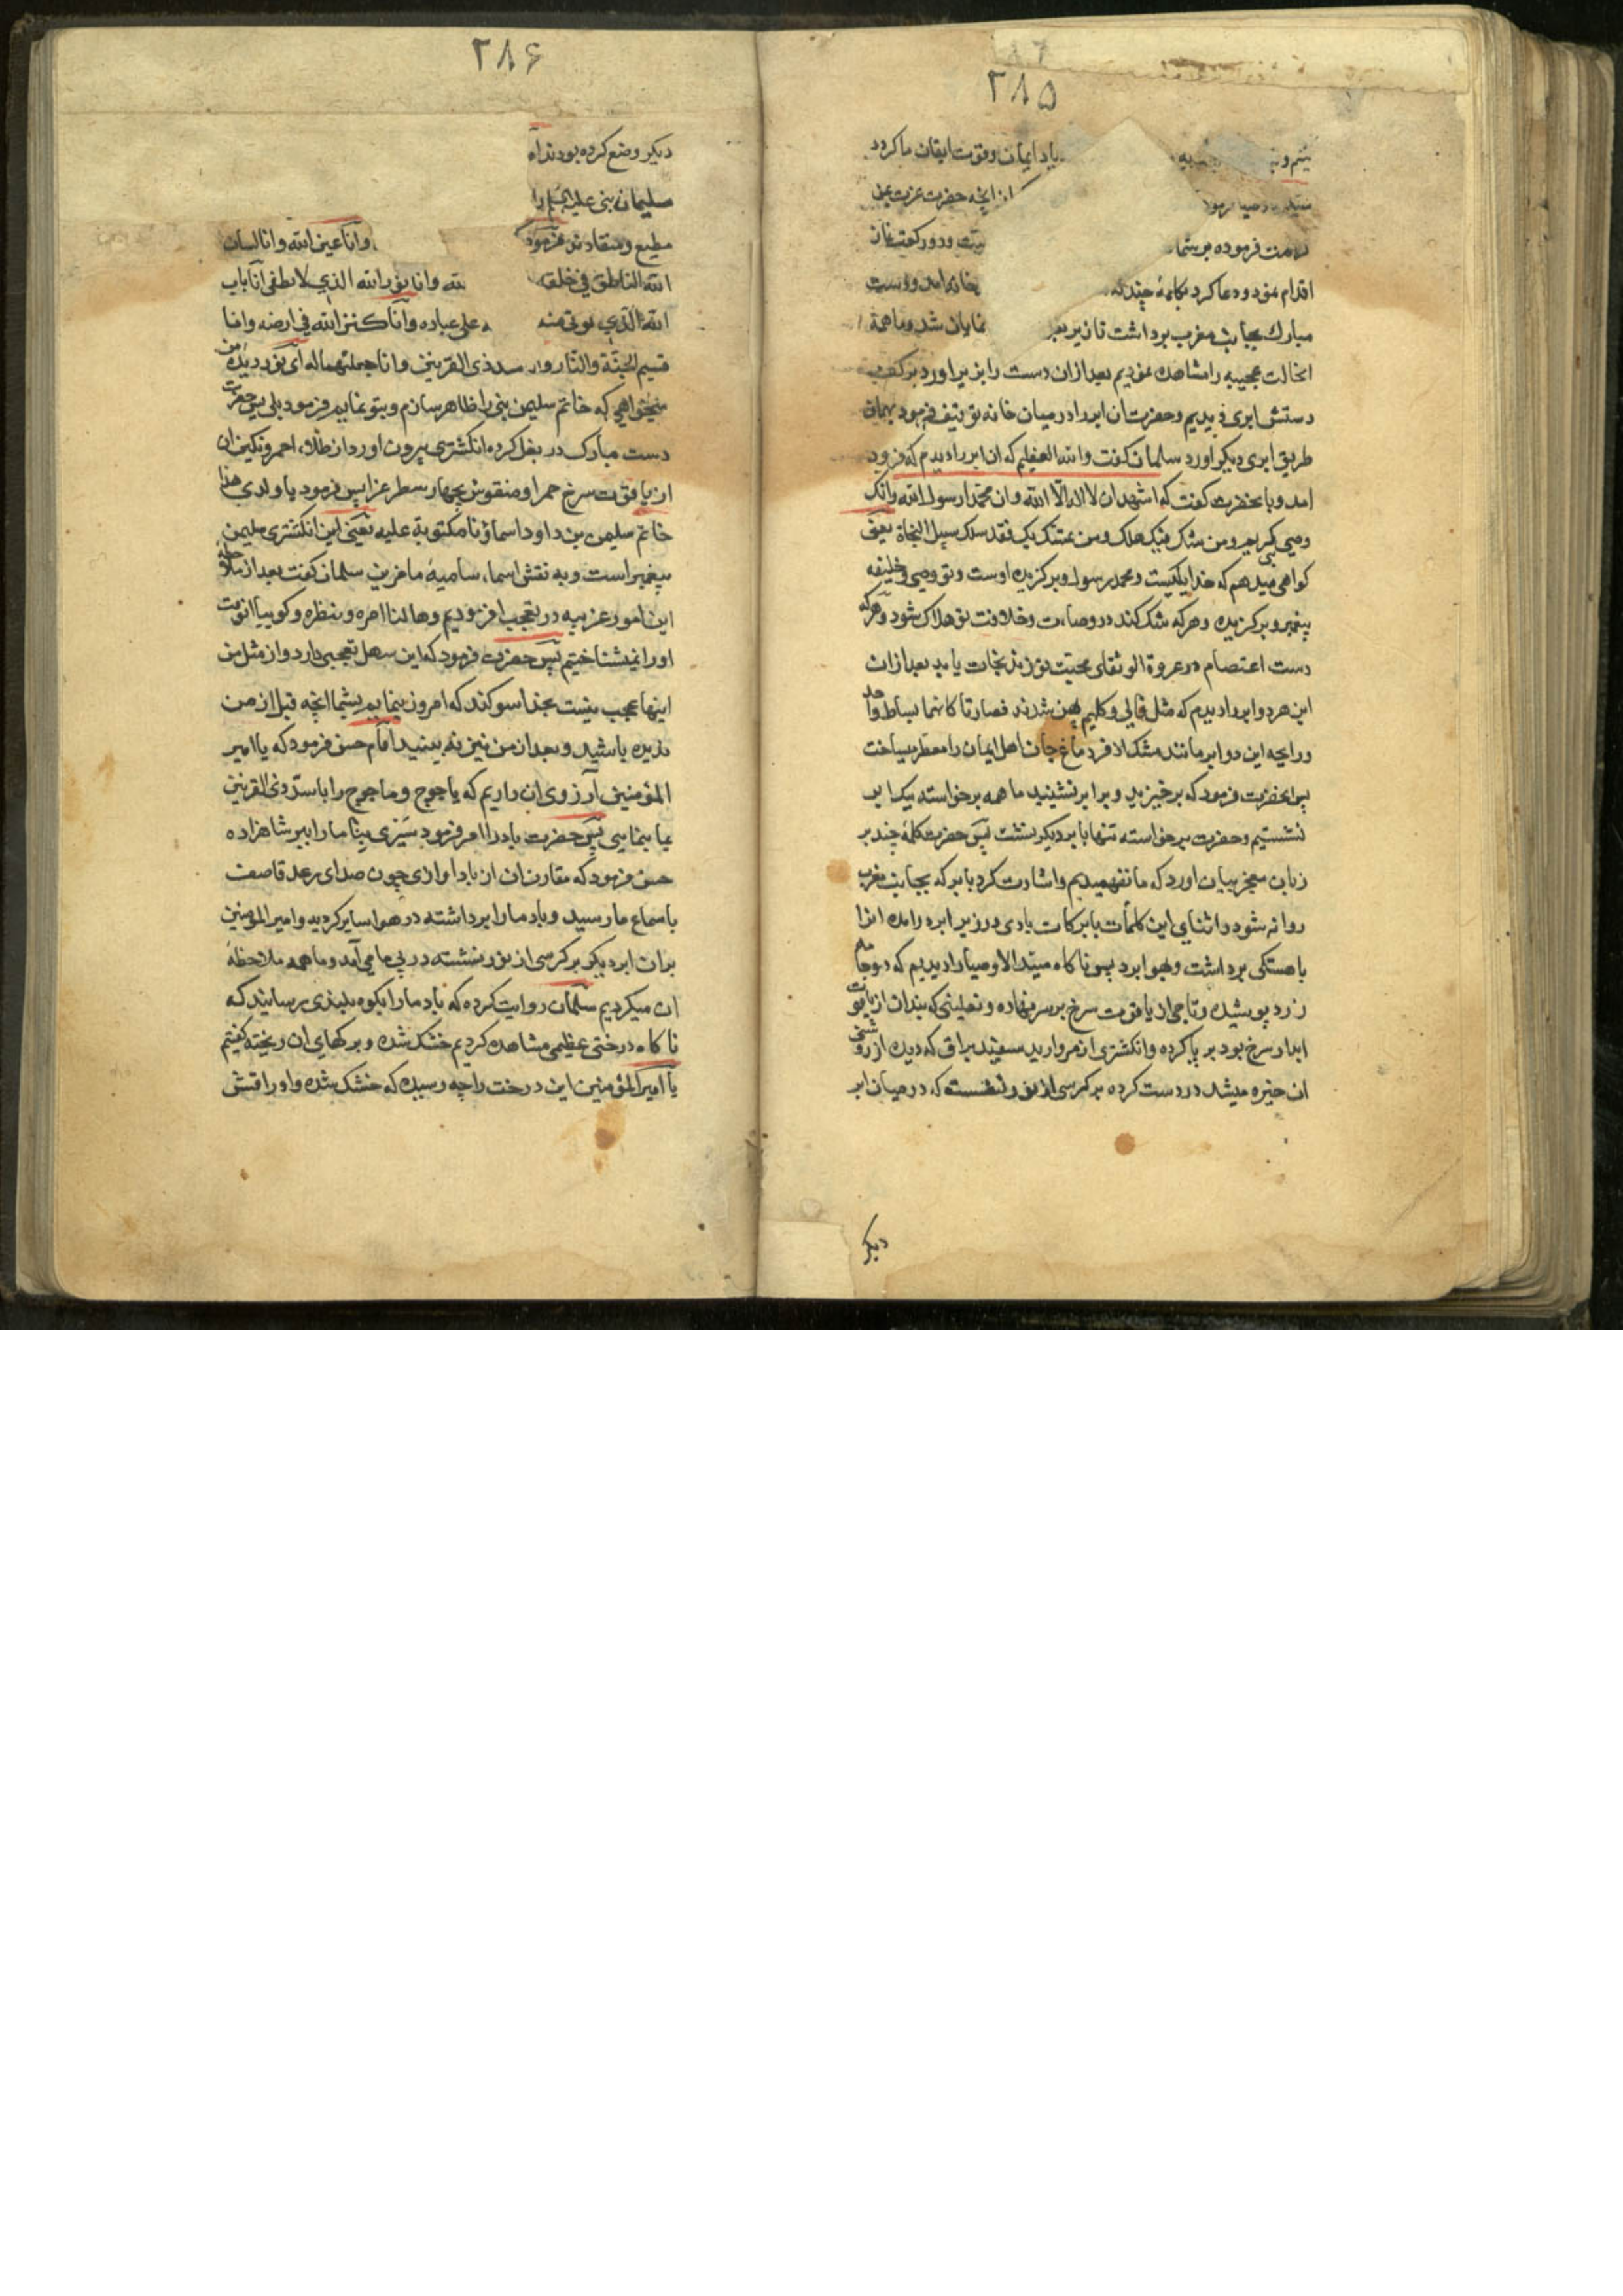 ۲۸۵
یاد ایمان وقوت ایقان ما کردد
از انچه حضرت عزت بمن
فرموده بر شما ودو رکعت نماز
اقدام نمود ودعا کرد بکلمهٔ چند که بخانه امد ودست
مبارک بجانب مغرب برداشت نمایان شد وما همه
انحالت عجیبه را مشاهده نمودیم بعد ازان دست را بزیر اورد بر کف
دستش ابری دیدیم وحضرت ان ابر را در میان خانه توقیف فرمود بهمان
طریق ابری دیکر اورد سلمان کفت والله العظیم که ان ابر را دیدم که فرود
امد وبا نحضرت کفت که اشهد ان لا اله الا الله وان محمدا رسول الله وانک
وصی کریم ومن شک فیک هلک ومن تمسک بک فقد سلک سبیل النجاة یعنی
کواهی میدهم که خدا یکیست ومحمد رسول وبرکزیده اوست وتو وصی وخلیفه
پیغمبر وبرکزیده وهرکه شک کند در وصایت وخلافت تو هلاک شود وهرکه
دست اعتصام در عروة الوثقای محبت تو زند نجات یابد بعد ازان
این هر دو ابر را دیدم که مثل قالی وکلیم پهن شدند فصارتا کانهما بساط واحد
ورایحه این دو ابر مانند مشک اذفر دماغ جان اهل ایمان را معطر میساخت
پس انحضرت فرمود که برخیزید وبر ابر نشینید ما همه برخواسته بیک ابر
نشستیم وحضرت برخواسته تنها بابر دیکر نشست پس حضرت کلمهٔ چند بر
زبان معجز بیان اورد که ما نفهمیدیم واشارت کرد بابر که بجانب مغرب
روانه شود در اثنای این کلمات بابرکات بادی در زیر ابر درامده انرا
باهستکی برداشت وبهوا برد پس ناکاه سید الاوصیا را دیدیم که دو جامه
زرد پوشیده وتاجی از یاقوت سرخ بر سر نهاده ونعلینی که بندان از یاقوت
ابدار سرخ بود بر پا کرده وانکشتری از مروارید سفید براق که دیده از روشنی
ان خیره میشد در دست کرده بر کرسی از نور نشسته که در میان ابر
دیکر
۲۸۶
دیکر وضع کرده بودند
سلیمان نبی علیه السلام را
مطیع ومنقادش فرمود وانا عین الله وانا لسان
الله الناطق فی خلقه وانا نور الله الذی لا یطفی انا باب
الله الذی یوتی منه علی عباده وانا کنز الله فی ارضه وانا
قسیم الجنة والنار وان سد ذی القرنین وانا جملتهما له ای نور دیده من
میخواهی که خاتم سلیمن نبی را ظاهر سازم وبتو نمایم فرمود بلی پس حضرت
دست مبارک در بغل کرده انکشتری بیرون اورد از طلاء احمر ونکین ان
از یاقوت سرخ حمرا ومنقوش بچهار سطر عزا پس فرمود یا ولدی هذا
خاتم سلیمن بن داود اسماؤنا مکتوبة علیه یعنی این انکشتری سلیمن
پیغمبر است وبه نقش اسماء سامیهٔ ما مزین سلمان کفت بعد از ملاحظه
این امور عزیبه در تعجب افزودیم
او را نمیشناختیم پس حضرت فرمود که این سهل تعجبی دارد واز مثل من
اینها عجب نیست بخدا سوکند که امروز بنمایم بشما انچه قبل از من
ندیده باشید وبعد از من نیز نه بینید امام حسن فرمود که یا امیر
المؤمنین ارزوی ان داریم که یاجوج وماجوج را با سد ذی القرنین
بما بنمایی پس حضرت باد را امر فرمود سیری بنا ما را ببر شاهزاده
حسن فرمود که مقارن ان از باد اوازی چون صدای رعد قاصف
باسماع ما رسید وباد ما را برداشته در هوا سایر کردید وامیر المؤمنین
بران ابر دیکر بر کرسی از نور نشسته در پی ما می آمد وما همه ملاحظهٔ
ان میکردیم سلمان روایت کرده که باد ما را بکوه بلندی رسانید که
ناکاه درختی عظیمی مشاهده کردیم خشک شده وبرکهای ان ریخته کفتیم
یا امیر المؤمنین این درخت را چه رسیده که خشک شده واوراقش